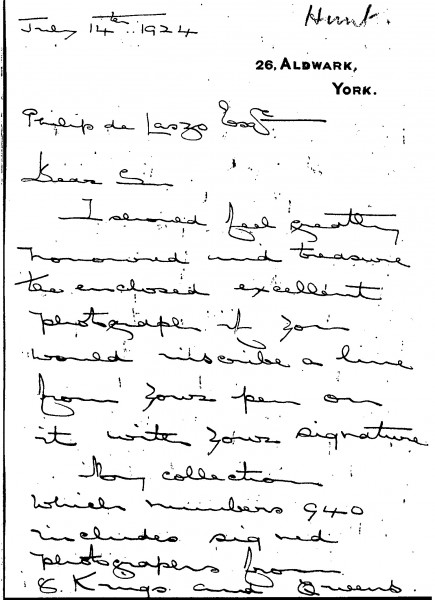 Hunt.
July 14th 1924
26, ALDWARK,
YORK.
Philip de Laszo Esqre
Dear Sir
I should feel greatly
honoured and treasure
the enclosed excellent
photograph if you
would inscribe a line
from your pen on
it with your signature
My collection
which numbers 940
includes signed
photographs from
8. Kings and Queens.